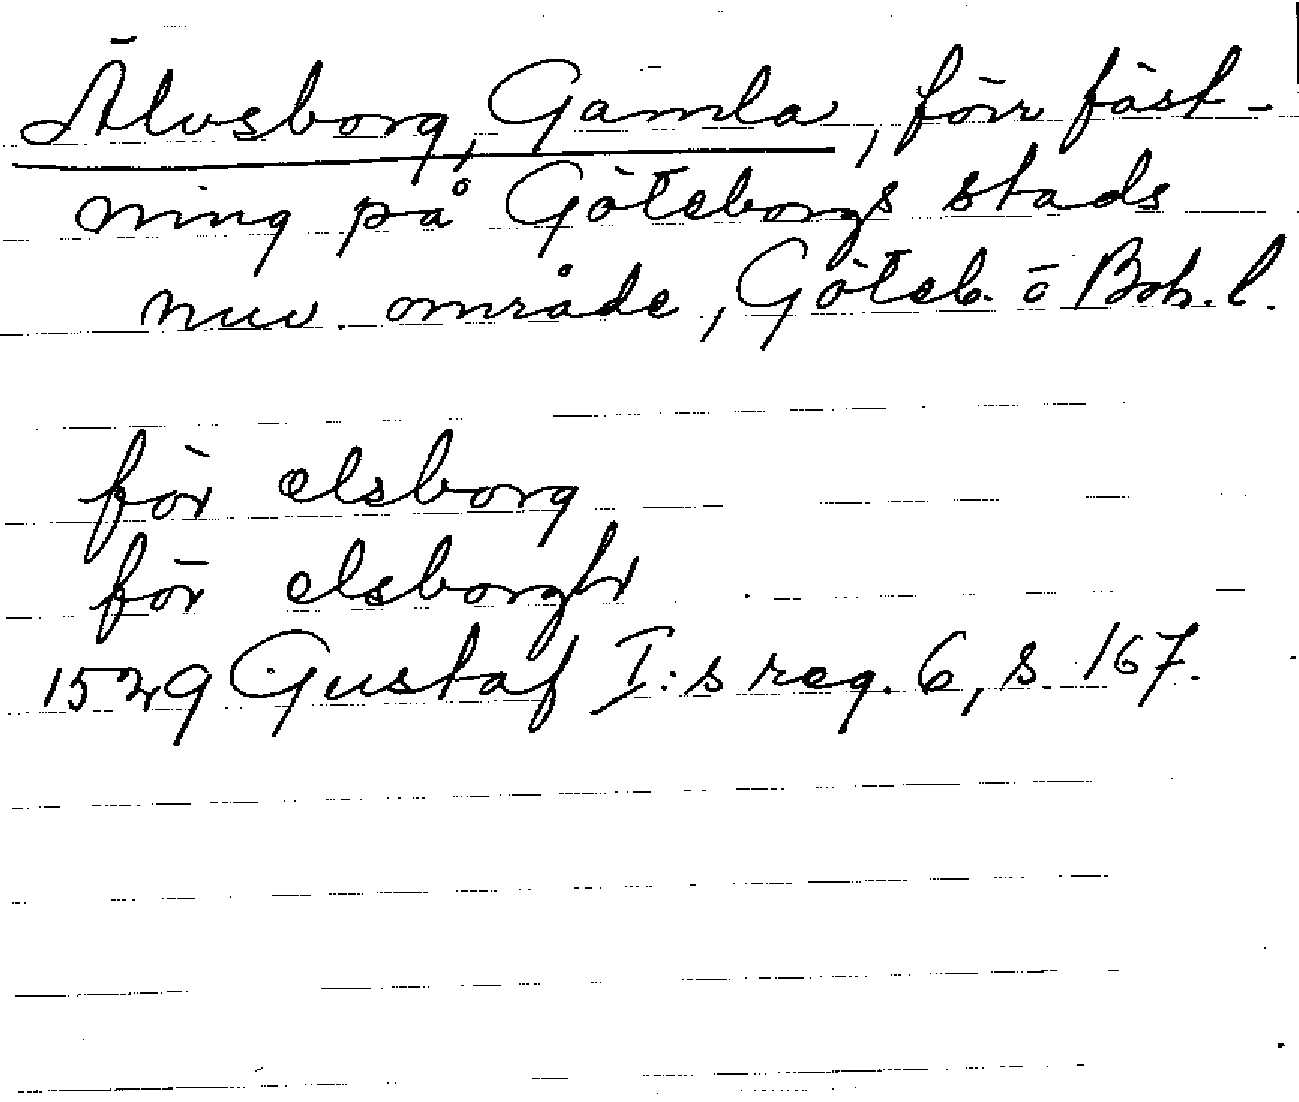 Älvsborg, Gamla, förr fäst-
ning på Göteborgs stads
nuv. område, Göteb. o Boh. l.
för elsborg
för elsborgh
1529 Gustaf I:s reg. 6, s. 167.